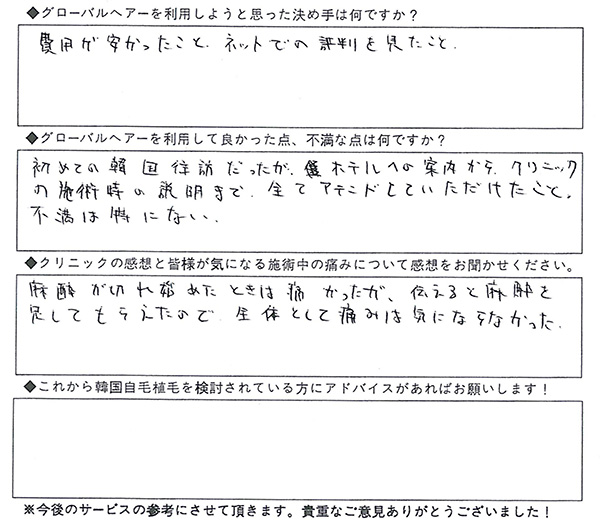 ◆グローバルヘアーを利用しようと思った決め手は何ですか？
費用が安かったこと、ネットでの評判を見たこと.
◆グローバルヘアーを利用して良かった点、不満な点は何ですか？
初めての韓国往訪だったが、ホテルへの案内から、クリニック
の施術時の説明まで、全てアテンドしていただけたこと。
不満は特にない.
◆クリニックの感想と皆様が気になる施術中の痛みについて感想をお聞かせください。
麻酔が切れ始めたときは痛かったが、伝えると麻酔を
足してもらえたので、全体として痛みは気にならなかった.
◆これから韓国自毛植毛を検討されている方にアドバイスがあればお願いします！
※今後のサービスの参考にさせて頂きます。貴重なご意見ありがとうございました！